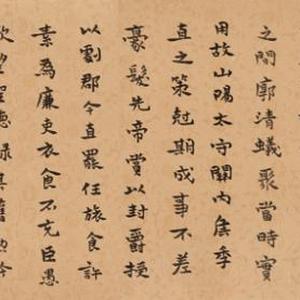 之間廓清蟻聚當時實
用故山陽太守關內侯季
直之策尅期成事不差
豪髮先帝賞以封爵授
以劇郡今直罷任旅食許
素為廉吏衣食不充臣愚
望聖德録其舊